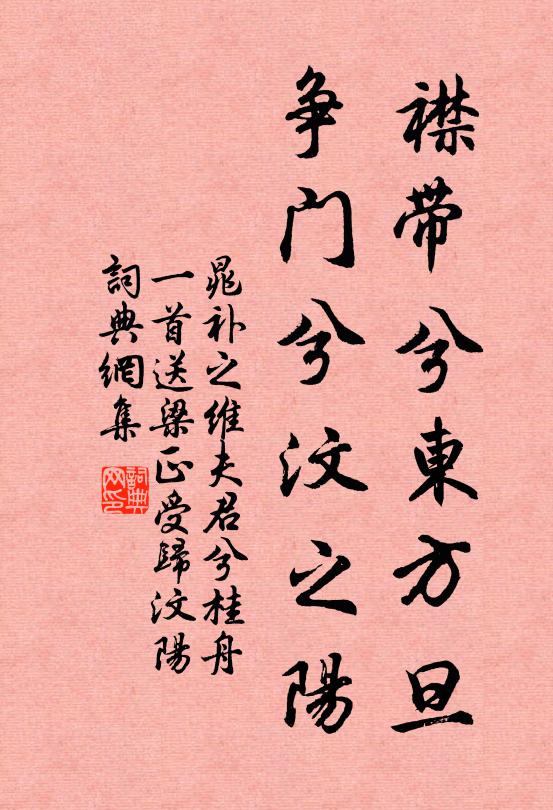 襟带兮東方旦
争门兮汶之陽
晁补之维夫君兮桂舟
一首送梁正受歸汶陽
詞典網集
詞典
网印